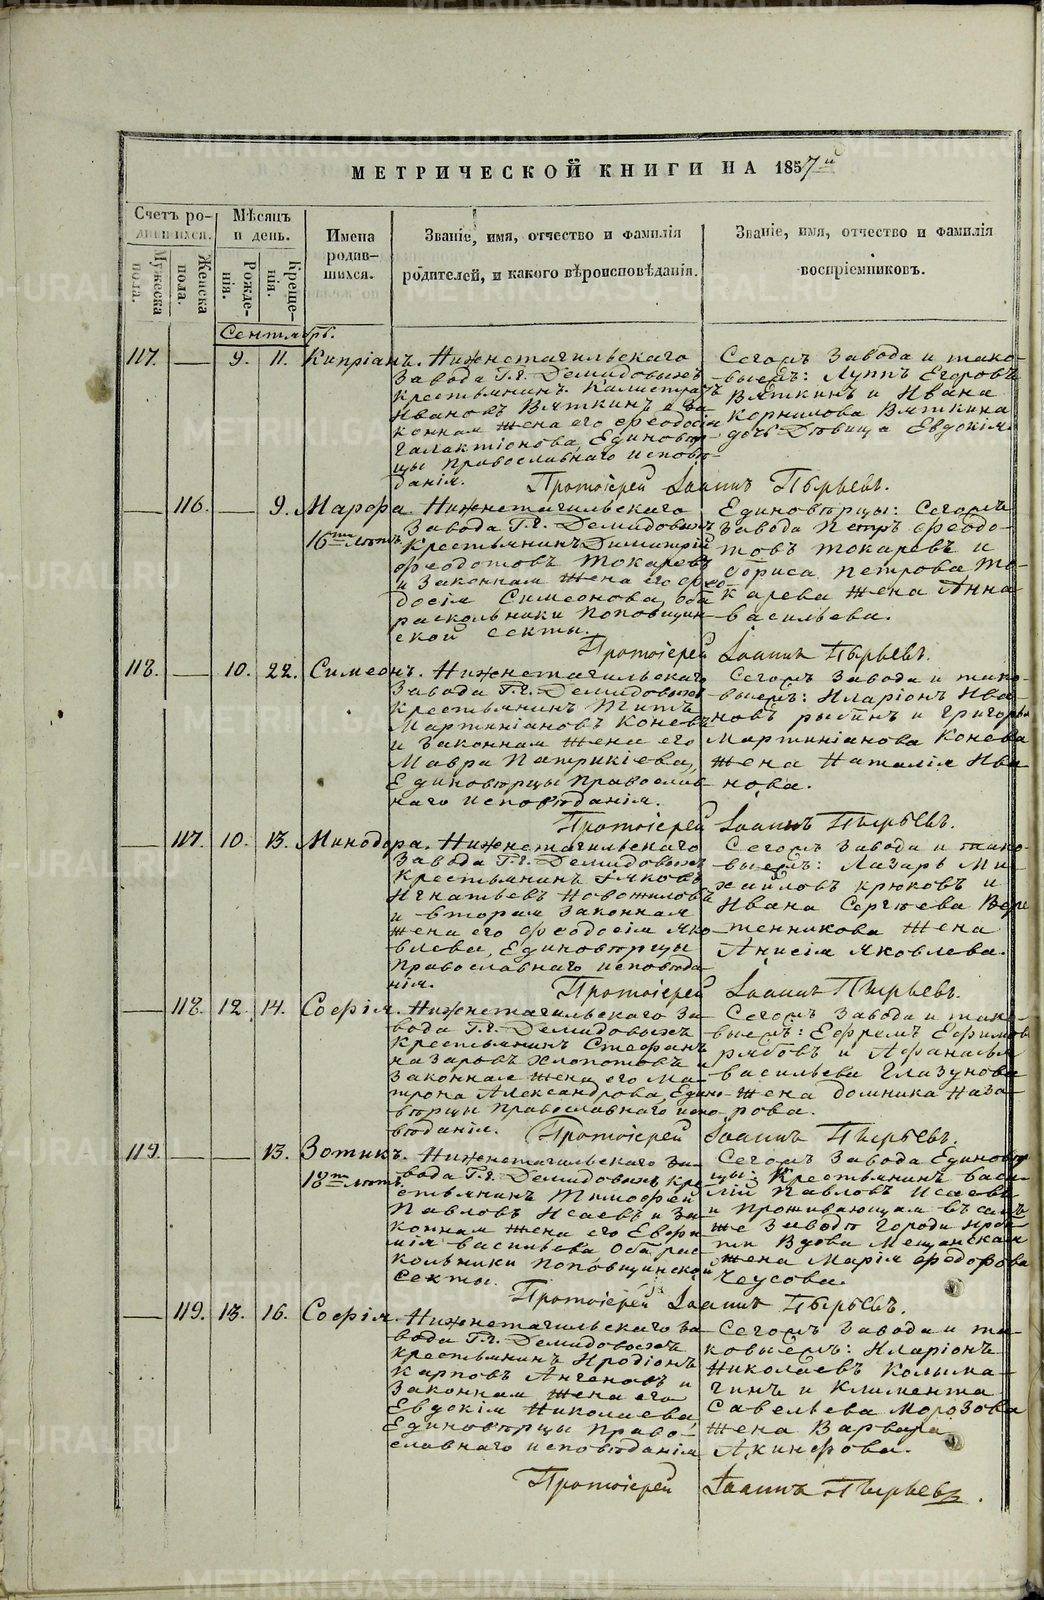 МЕТРИЧЕСКОЙ КНИГИ НА 1857й
Счетъ ро-
дившихся.
Мужеска
пола.
Женска
пола.
Мѣсяцъ
и день.
Рожде-
нія.
Креще-
нія.
Имена
родив-
шихся.
Званіе, имя, отчество и фамилія
родителей, и какого вѣроисповѣданія.
Званіе, имя, отчество и фамилія
воспріемниковъ.
Сентябрь.
117. — 9. 11. Кипріанъ.
Нижнетагильскаго
Завода Г.г. Демидовыхъ
крестьянинъ Калистратъ
Ивановъ Вяткинъ и за-
конная жена его Феодосія
Галактіонова, Единовѣр-
цы Православнаго исповѣ-
данія.
Сегожъ Завода и тако-
выежъ: Луппъ Егоровъ
Вяткинъ и Ивана
Корнилова Вяткина
дочь Дѣвица Евдокія.
Протоіерей Іоаннъ Пырьевъ.
— 116. — 9. Марфа
16ти лѣтъ
Нижнетагильскаго
Завода Г.г. Демидовыхъ
Крестьянинъ Димитрій
Феодотовъ Токаревъ
и Законная жена его Фео-
досія Симеонова, оба
раскольники Поповщин-
ской секты.
Единовѣрцы: Сегожъ
Завода Петръ Феодо-
товъ Токаревъ и
Бориса Петрова То-
карева жена Анна
Васильева.
Протоіерей Іоаннъ Пырьевъ.
118. — 10. 22. Симеонъ.
Нижнетагильскаго
Завода Г.г. Демидовыхъ
Крестьянинъ Титъ
Мартиніановъ Коневъ
и Законная жена его
Мавра Патрикіева,
Единовѣрцы Православ-
наго исповѣданія.
Сегожъ Завода и тако-
выежъ: Иларіонъ Ива-
новъ Рыбинъ и Григорья
Мартиніанова Конева
жена Наталія Ива-
нова.
Протоіерей Іоаннъ Пырьевъ.
— 117. 10. 13. Минодора.
Нижнетагильскаго
Завода Г.г. Демидовыхъ
Крестьянинъ Іяковъ
Игнатьевъ Новожиловъ
и вторая Законная
жена его Феодосія Яко-
влева, Единовѣрцы
Православнаго исповѣда-
нія.
Сегожъ Завода и тако-
выежъ: Лазарь Ми-
хайловъ Крюковъ и
Ивана Сергѣева Вере-
тенникова жена
Анисія Яковлева.
Протоіерей Іоаннъ Пырьевъ.
— 118. 12. 14. Софія.
Нижнетагильскаго За-
вода Г.г. Демидовыхъ
Крестьянинъ Стефанъ
Назаровъ Хлопотовъ и
Законная жена его Ма-
трона Александрова, Едино-
вѣрцы Православнаго испо-
вѣданія.
Сегожъ Завода и тако-
выежъ: Ефремъ Ефимовъ
Рябовъ и Афанасья
Васильева Глазунова
жена Домника Наза-
рова.
Протоіерей Іоаннъ Пырьевъ.
119. — — 13. Зотикъ.
18ти лѣтъ.
Нижнетагильскаго За-
вода Г.г. Демидовыхъ кре-
стьянинъ Тимофей
Павловъ Исаевъ и За-
конная жена его Евфи-
мія Васильева оба рас-
кольники Поповщинской
Секты.
Сегожъ Завода Единовѣр-
цы: Крестьянинъ Васи-
лій Павловъ Исаевъ
и Проживающая въ семъ
же Заводѣ Города
Вдова Мещанская
жена Марія Феодорова
Чеусова.
Протоіерей Іоаннъ Пырьевъ.
— 119. 13. 16. Софія.
Нижнетагильскаго За-
вода Г.г. Демидовыхъ
крестьянинъ Иродіонъ
Карповъ и
Законная жена его
Евдокія Николаева,
Единовѣрцы Право-
славнаго исповѣданія
Сегожъ Завода и та-
ковыежъ: Иларіонъ
Николаевъ Колыма-
гинъ и Климента
Савельева Морозова
жена Варвара
Акинфова.
Протоіерей Іоаннъ Пырьевъ.
METRIKI.GASO-URAL.RU